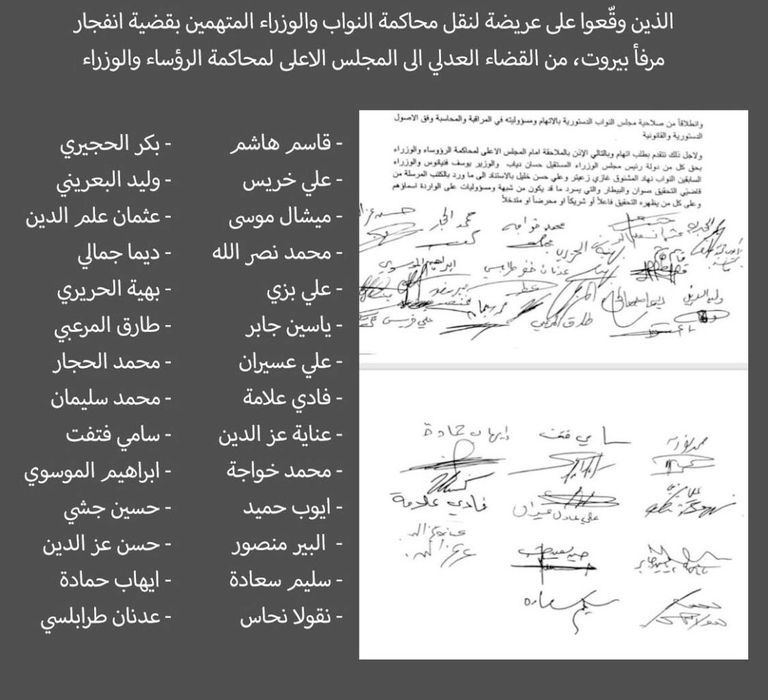 الذين وقّعوا على عريضة لنقل محاكمة النواب والوزراء المتهمين بقضية انفجار
مرفأ بيروت، من القضاء العدلي الى المجلس الاعلى لمحاكمة الرؤساء والوزراء
- قاسم هاشم
- علي خريس
- ميشال موسى
- محمد نصر الله
- علي بزي
- ياسين جابر
- علي عسيران
- فادي علامة
- عناية عز الدين
- محمد خواجة
- ايوب حميد
- البير منصور
- سليم سعادة
- نقولا نحاس
- بكر الحجيري
- وليد البعريني
- عثمان علم الدين
- ديما جمالي
- بهية الحريري
- طارق المرعبي
- محمد الحجار
- محمد سليمان
- سامي فتفت
- ابراهيم الموسوي
- حسين جشي
- حسن عز الدين
- ايهاب حمادة
- عدنان طرابلسي
وانطلاقاً من صلاحية مجلس النواب الدستورية بالاتهام ومسؤوليته في المراقبة والمحاسبة وفق الاصول
الدستورية والقانونية
ولاجل ذلك نتقدم بطلب اتهام وبالتالي الإذن بالملاحقة امام المجلس الاعلى لمحاكمة الرؤوساء والوزراء
بحق كل من دولة رئيس مجلس الوزراء المستقيل حسان دياب والوزير يوسف فنيانوس والوزراء
السابقين النواب نهاد المشنوق غازي زعيتر وعلي حسن خليل بالاستناد الى ما ورد بالكتب المرسلة من
قاضيي التحقيق صوان والبيطار والتي يسرد ما قد يكون من شبهة ومسؤوليات على الواردة اسماؤهم
وعلى كل من يظهره التحقيق فاعلاً أو شريكاً او محرضاً او متدخلاً
محمد الحجار
محمد خواجه
عدنان طرابلسي
ابراهيم الموسوي
طارق المرعبي
علي خريس
ايهاب حمادة
سامي فتفت
فادي علامة
علي عادل عسيران
سليم سعاده